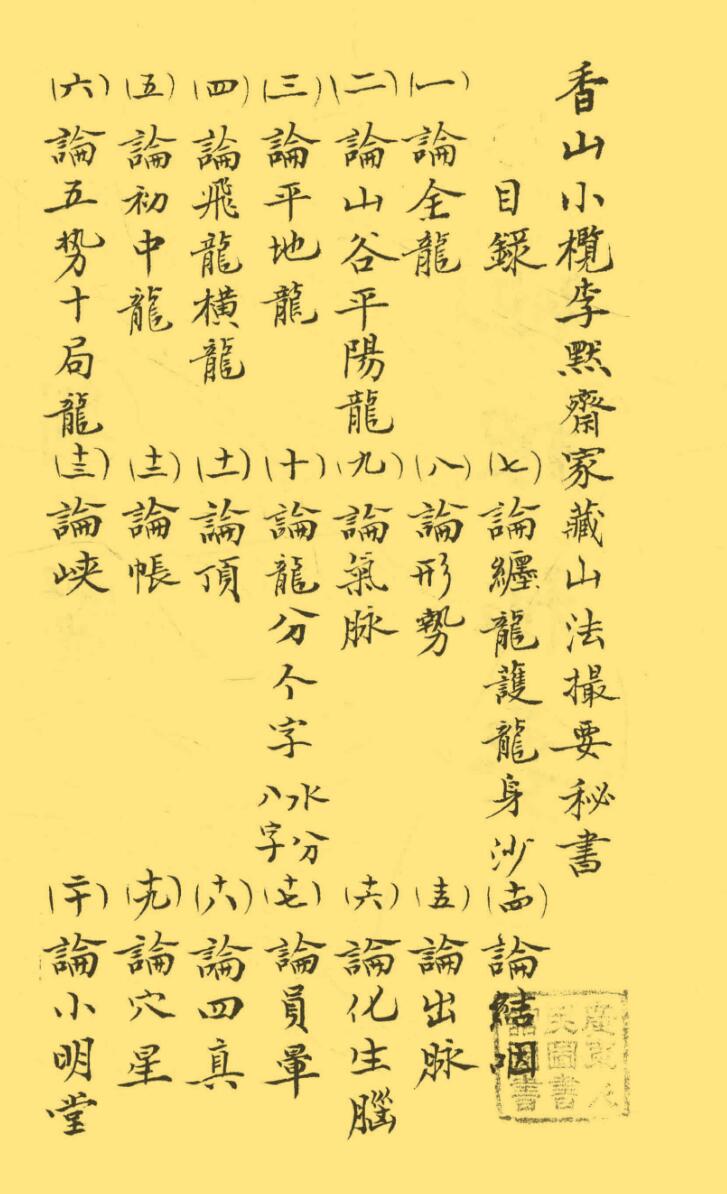 香山小欖李默齋家藏山法撮要秘書
目錄
(一)論全龍
(二)論山谷平陽龍
(三)論平地龍
(四)論飛龍橫龍
(五)論初中龍
(六)論五势十局龍
(七)論纏龍護龍身沙
(八)論形勢
(九)論氣脉
(十)論龍分个字 水分八字
(十一)論頂
(十二)論帳
(十三)論峡
(十四)論結咽
(十五)論出脉
(十六)論化生腦
(十七)論員暈
(十八)論四真
(十九)論穴星
(二十)論小明堂